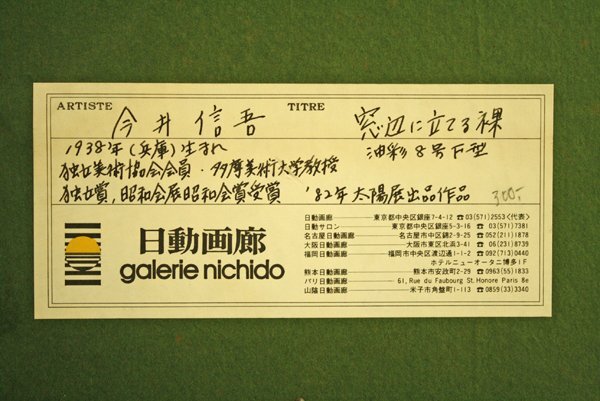 ARTISTE 今井信吾 TITRE 窓辺に立てる裸
1938年(兵庫)生まれ 油彩8号F型
独立美術協会会員・多摩美術大学教授
独立賞,昭和会展昭和会賞受賞 '82年太陽展出品作品 300-
日動画廊
galerie nichido
日動画廊 東京都中央区銀座7-4-12 ☎03(571)2553〈代表〉
日動サロン 東京都中央区銀座5-3-16 ☎03(571)7381
名古屋日動画廊 名古屋市中区錦2-9-25 ☎052(211)1878
大阪日動画廊 大阪市東区北浜3-41 ☎06(231)8739
福岡日動画廊 福岡市中央区渡辺通1-1-2 ☎092(713)0440
ホテルニューオータニ博多1F
熊本日動画廊 熊本市安政町2-29 ☎0963(55)1833
パリ日動画廊 61, Rue du Faubourg St. Honore Paris 8e
山陰日動画廊 米子市角盤町1-113 ☎0859(33)3340